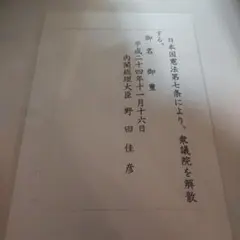 日本国憲法第七条により、衆議院を解散
する。
御名御璽
平成二十四年十一月十六日
内閣総理大臣 野田佳彦